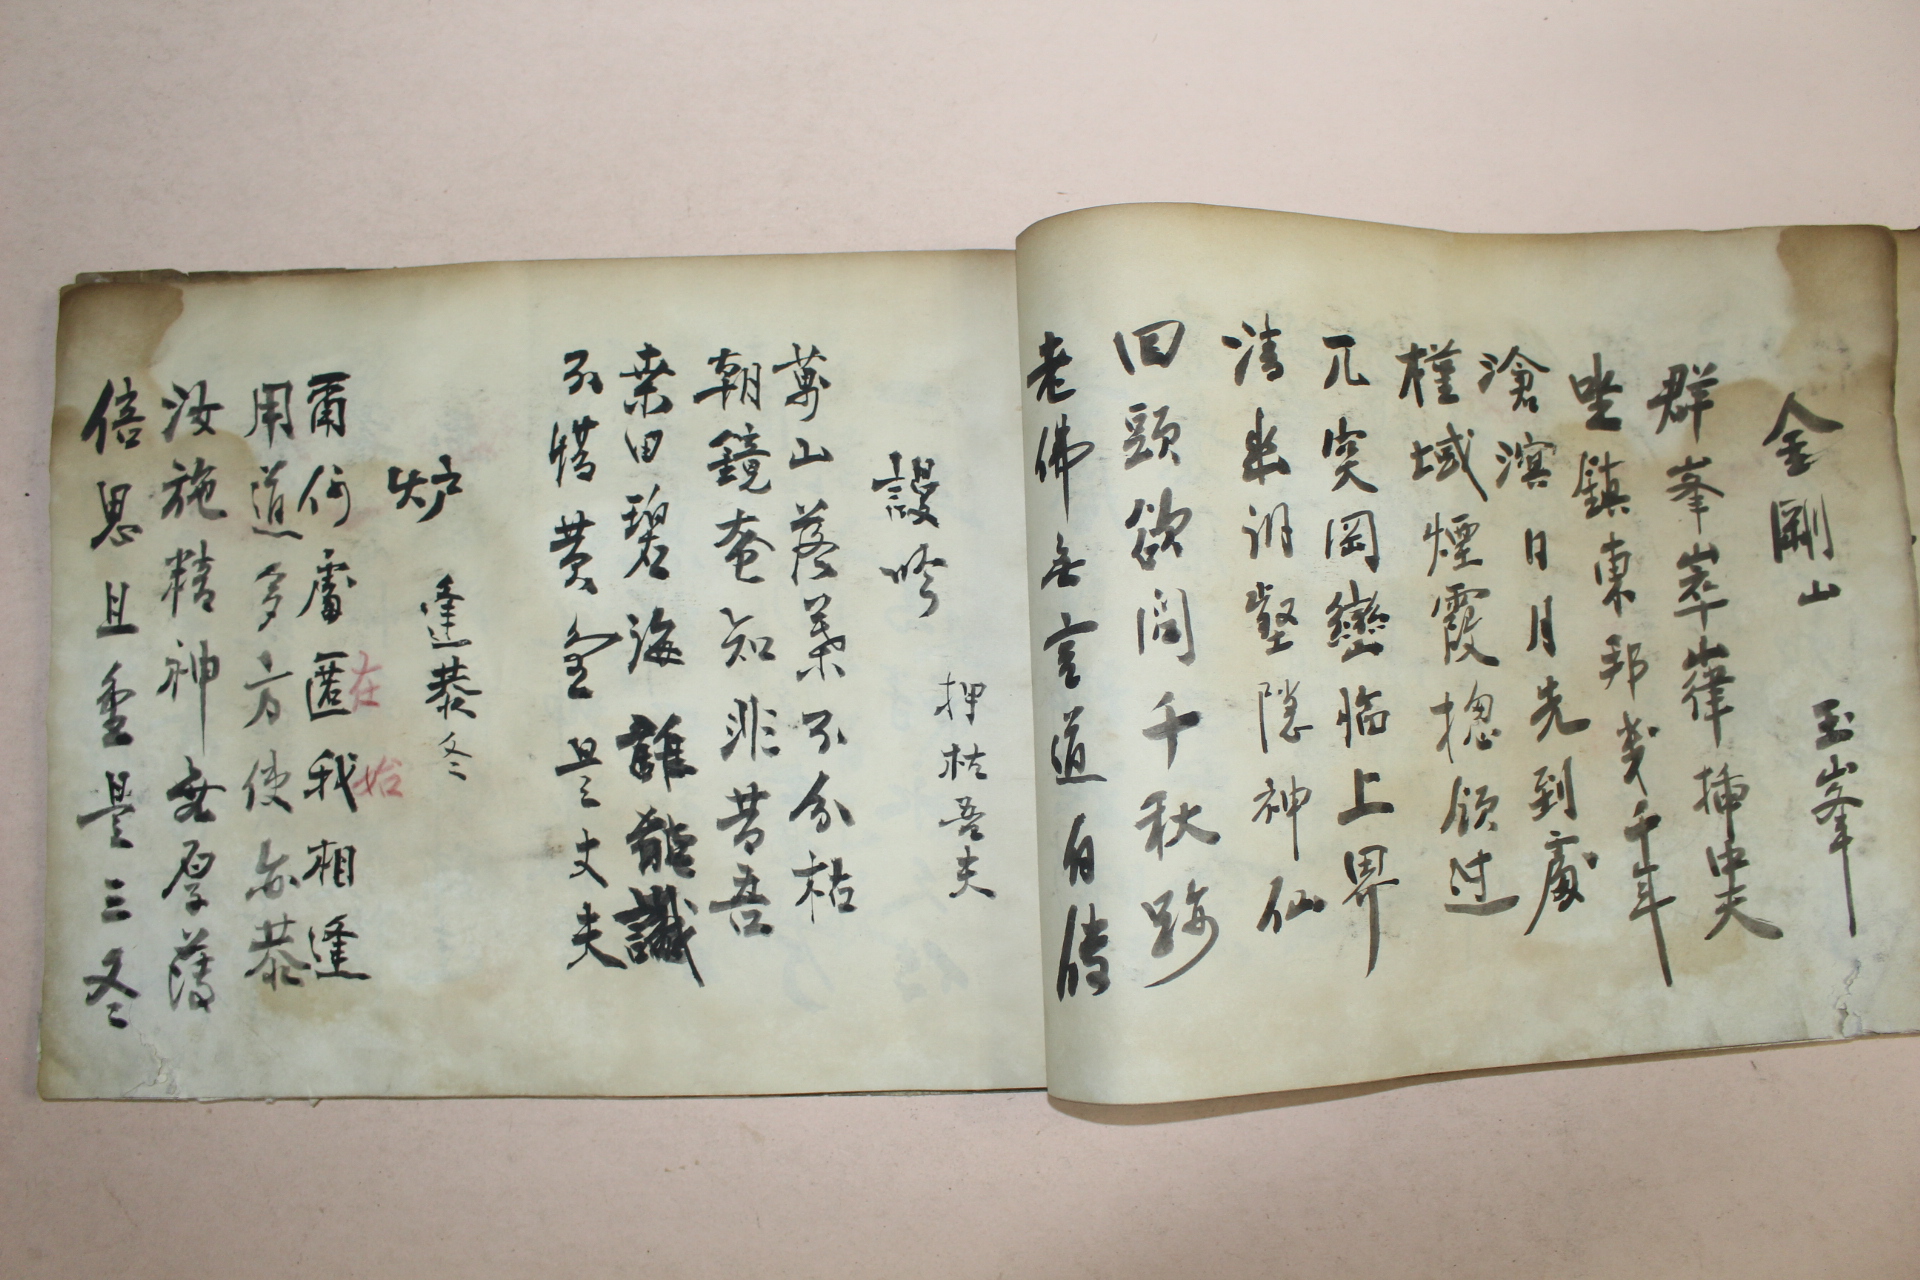 金剛山
玉峯
群峯崒嵂揷中天
坐鎭東邦幾千年
滄溟日月先到處
槿域煙霞揔領过
兀突岡巒临上界
清幽洞壑隐神仙
回頭欲问千秋跡
老佛無言道自傳
謾吟
押枯吾夫
萬山落葉不分枯
朝鏡奄知非昔吾
桒田碧海誰能識
不惜黃金是丈夫
炉
逢恭冬
爾何處匿我相逢
在
始
用道多方使亦恭
汝施精神無厚薄
倍思且重是三冬